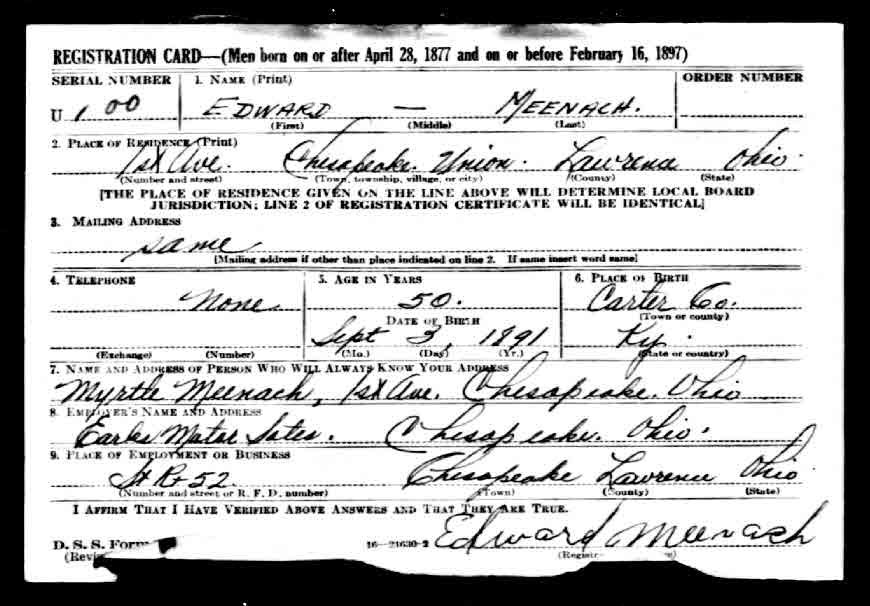 REGISTRATION CARD—(Men born on or after April 28, 1877 and on or before February 16, 1897)
SERIAL NUMBER 1. NAME (Print) ORDER NUMBER
U 100 EDWARD — MEENACH.
(First) (Middle) (Last)
2. PLACE OF RESIDENCE (Print)
1st Ave. Chesapeake. Union. Lawrence Ohio.
(Number and street) (Town, township, village, or city) (County) (State)
[THE PLACE OF RESIDENCE GIVEN ON THE LINE ABOVE WILL DETERMINE LOCAL BOARD
JURISDICTION; LINE 2 OF REGISTRATION CERTIFICATE WILL BE IDENTICAL]
3. MAILING ADDRESS
same
[Mailing address if other than place indicated on line 2. If same insert word same]
4. TELEPHONE 5. AGE IN YEARS 6. PLACE OF BIRTH
None. 50. Carter Co.
DATE OF BIRTH (Town or county)
Sept 3, 1891 Ky.
(Exchange) (Number) (Mo.) (Day) (Yr.) (State or country)
7. NAME AND ADDRESS OF PERSON WHO WILL ALWAYS KNOW YOUR ADDRESS
Myrtle Meenach, 1st Ave. Chesapeake. Ohio
8. EMPLOYER'S NAME AND ADDRESS
Earls Motor Sales. Chesapeake. Ohio.
9. PLACE OF EMPLOYMENT OR BUSINESS
St Rt 52. Chesapeake Lawrence Ohio.
(Number and street or R. F. D. number) (Town) (County) (State)
I AFFIRM THAT I HAVE VERIFIED ABOVE ANSWERS AND THAT THEY ARE TRUE.
D. S. S. Form 16—21630-2 Edward Meenach